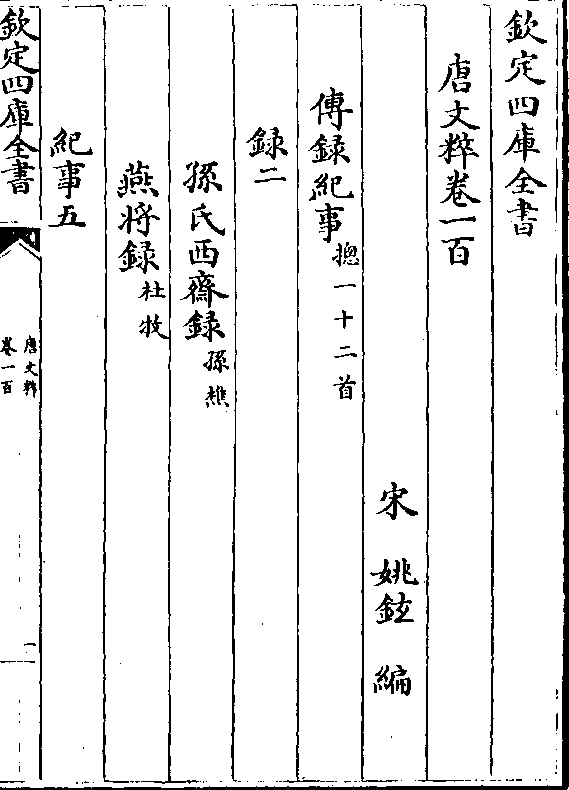 欽定四庫全書
唐文粹卷一百
宋 姚鉉 編
傳録紀事摠一十二首
録二
孫氏西齋録孫樵
燕将録杜牧
紀事五
欽定四庫全書
唐文粹
卷一百
一